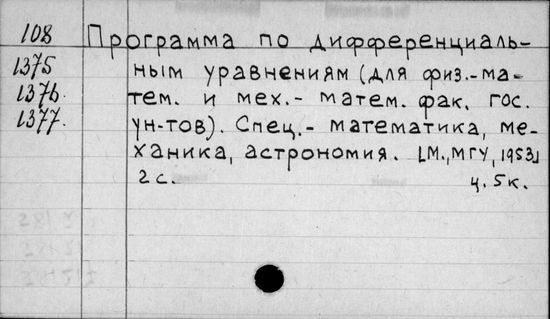 108 Программа по дифференциаль-
1375 ным уравнениям (для физ.-ма-
1376. тем. и мех.- матем. фак. гос.
1377. ун-тов). Спец.- математика, ме-
ханика, астрономия. [М., МГУ, 1953]
2 с. ц. 5 к.